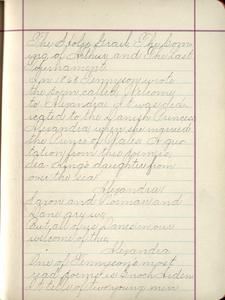 The Holy Grail, The Com-
ing of Arthur and The Last
Tournament.
In 1863 Tennyson wrote
the poem called Welcome
to Alexandra. It was ded-
icated to the Danish Princess
Alexandra when she married
the Prince of Wales. A quo-
tation from this poem is,
Sea Kings daughter from
over the sea
Alexandra
Saxon and Norman and
Dane are we
But all of us Danes in our
welcome of thee,
Alexandra
One of Tennyson's most
read poems is Enoch Arden
It tells of two young men